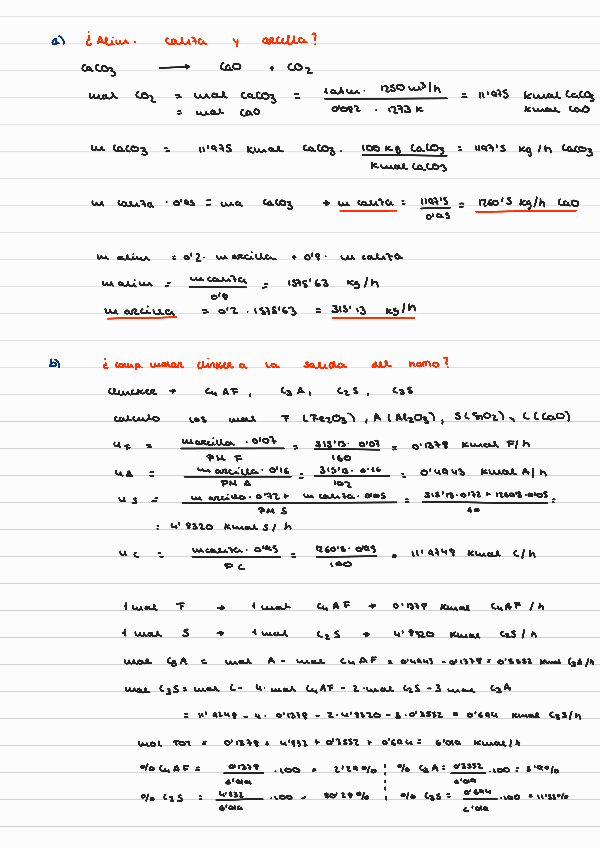 a) ¿Alim. caliza y arcilla?
CaCO3 → CaO + CO2
mol CO2 = mol CaCO3 = 1 atm · 1250 m³/h / 0'082 · 1273 K = 11'975 Kmol CaCO3
= mol CaO Kmol CaO
m CaCO3 = 11'975 Kmol CaCO3 · 100 kg CaCO3 / Kmol CaCO3 = 1197'5 kg/h CaCO3
m caliza · 0'95 = ma CaCO3 → m caliza = 1197'5 / 0'95 = 1260'5 kg/h CaO
m alim = 0'2 · m arcilla + 0'8 · m caliza
m alim = m caliza / 0'8 = 1575'63 kg/h
m arcilla = 0'2 · 1575'63 = 315'13 kg/h
b) ¿comp molar clinker a la salida del horno?
clincker → C4AF, C3A, C2S, C3S
calculo los mol F (Fe2O3), A (Al2O3), S (SiO2), C (CaO)
nF = m arcilla · 0'07 / PM F = 315'13 · 0'07 / 160 = 0'1378 Kmol F/h
nA = m arcilla · 0'16 / PM A = 315'13 · 0'16 / 102 = 0'4943 Kmol A/h
nS = m arcilla · 0'72 + m caliza · 0'05 / PM S = 315'13 · 0'72 + 1260'5 · 0'05 / 60 =
= 4'8320 Kmol S/h
nC = m caliza · 0'95 / PC = 1260'5 · 0'95 / 100 = 11'9748 Kmol C/h
1 mol F → 1 mol C4AF → 0'1378 Kmol C4AF/h
1 mol S → 1 mol C2S → 4'8320 Kmol C2S/h
mol C3A = mol A - mol C4AF = 0'4943 - 0'1378 = 0'3552 Kmol C3A/h
mol C3S = mol C - 4 · mol C4AF - 2 · mol C2S - 3 mol C3A
= 11'9748 - 4 · 0'1378 - 2 · 4'8320 - 3 · 0'3552 = 0'694 Kmol C3S/h
mol TOT = 0'1378 + 4'832 + 0'3552 + 0'694 = 6'019 Kmol/h
% C4AF = 0'1378 / 6'019 · 100 = 2'29% % C3A = 0'3552 / 6'019 · 100 = 5'90%
% C2S = 4'832 / 6'019 · 100 = 80'28% % C3S = 0'694 / 6'019 · 100 = 11'53%